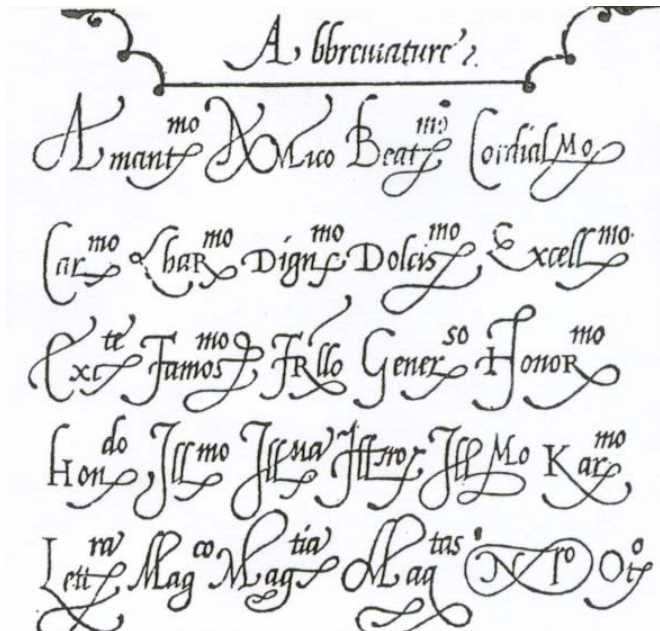 Abbreviature.
Amant^mo Amico Beat^mo Cordial^mo
Car^mo Char^mo Dign^mo Dolcis^mo Excell^mo.
Exc^te Famos^mo Frllo Gener^so Honor^mo
Hon^do Ill^mo Ill^ma Ill^mo Kar^mo
Lett^ra Mag^co Mag^tia Mag^tas N^ro Ot^o